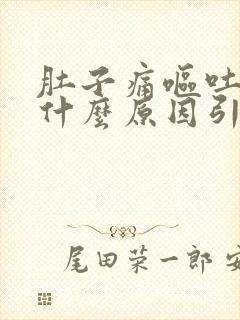 肚子痛嘔吐
什麼原因引
尾田荣一郎